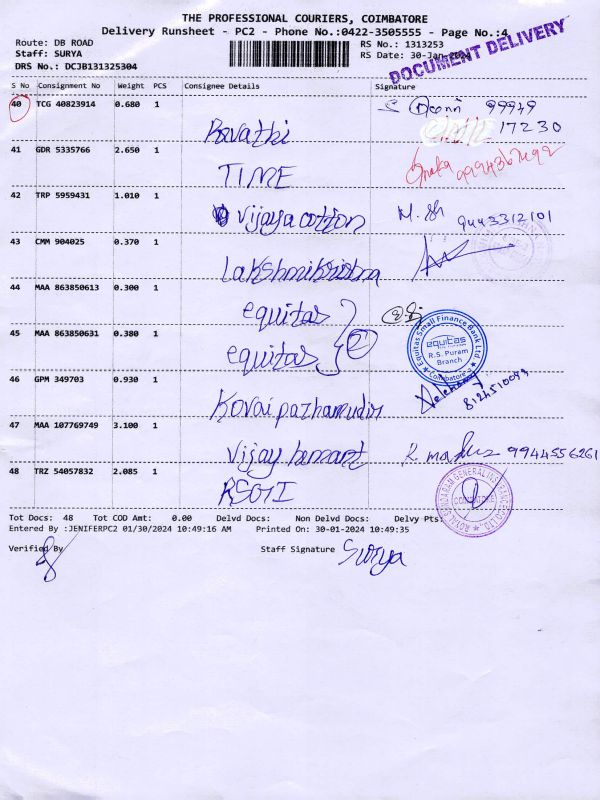 THE PROFESSIONAL COURIERS, COIMBATORE
Delivery Runsheet - PC2 - Phone No.:0422-3505555 - Page No.:4
Route: DB ROAD RS No.: 1313253
Staff: SURYA RS Date: 30-Jan-
DOCUMENT DELIVERY
DRS No.: DCJB131325304
S No Consignment No Weight PCS Consignee Details Signature
40 TCG 40823914 0.680 1 99949
Revathi 17230
41 GDR 5335766 2.650 1
TIME
42 TRP 5959431 1.010 1
Vijaya cotton 9443312101
43 CMM 904025 0.370 1
Lakshmikrishna
44 MAA 863850613 0.300 1
equitas
45 MAA 863850631 0.380 1
equitas 2
Equitas Small Finance Bank Ltd
equitas
R.S. Puram
Branch
Coimbatore-2
46 GPM 349703 0.930 1
Kovai pazhamudir 8124510093
47 MAA 107769749 3.100 1
Vijay hemant 9944556261
48 TRZ 54057832 2.085 1
RSGI
ROYAL SUNDARAM GENERAL INSURANCE CO. LTD.
Tot Docs: 48 Tot COD Amt: 0.00 Delvd Docs: Non Delvd Docs: Delvy Pts:
Entered By :JENIFERPC2 01/30/2024 10:49:16 AM Printed On: 30-01-2024 10:49:35
Verified By Staff Signature Surya